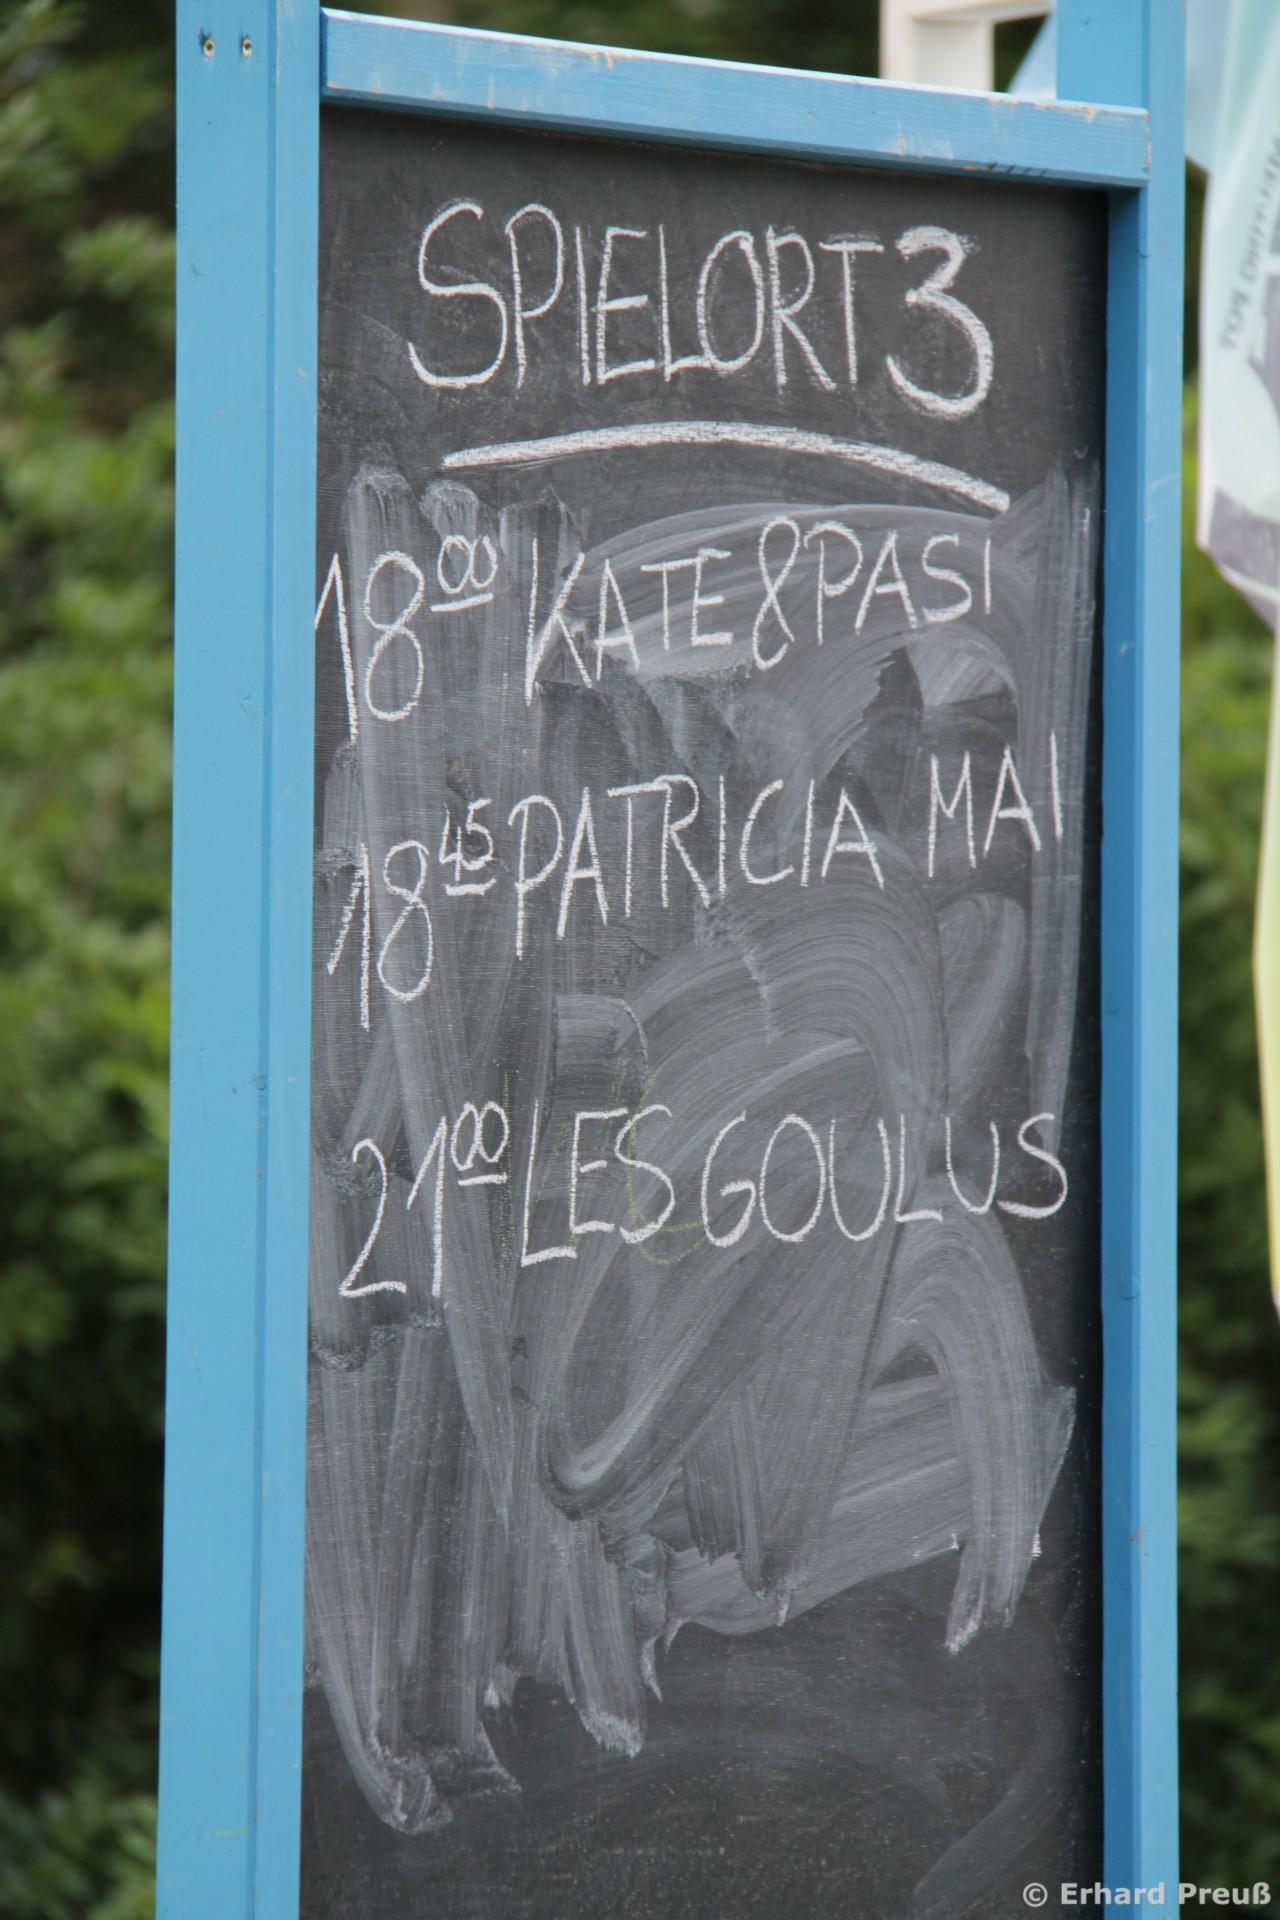 SPIELORT 3
18 00 KATE & PASI
18 45 PATRICIA MAI
21 00 LES GOULUS
© Erhard Preuß